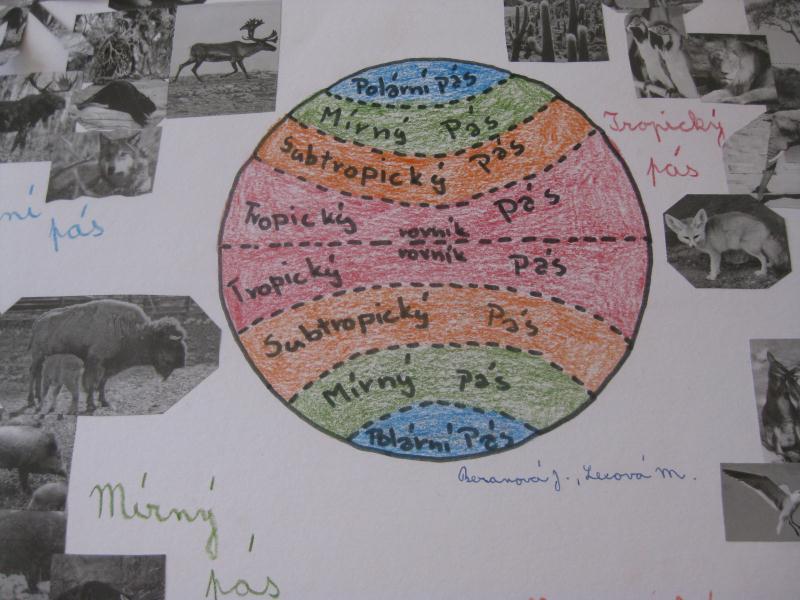 Polární pás
Mírný pás
Subtropický pás
Tropický pás
rovník
rovník
Tropický pás
Subtropický Pás
Mírný pás
Polární Pás
Tropický
pás
pás
Mírný
pás
Beranová J., Lecová M.